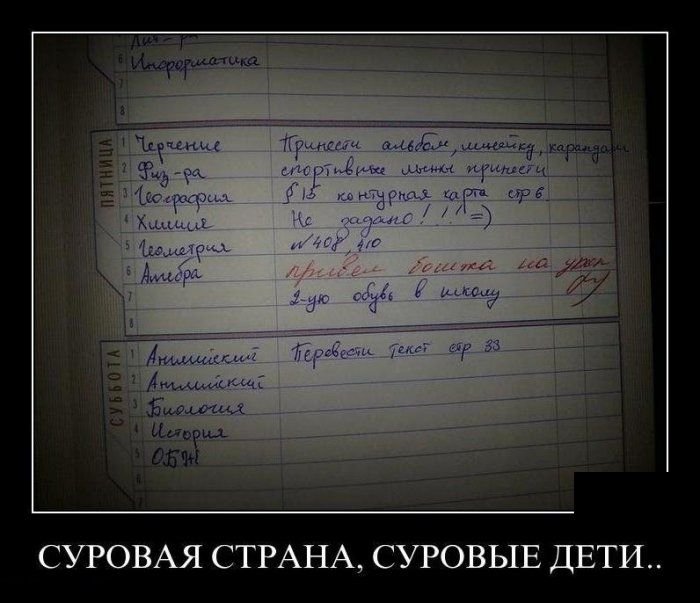 Лит-ра
6 Информатика
7
8
ПЯТНИЦА
1 Черчение Принести альбом, линейку, карандаш
2 Физ-ра спортивные лыжи принести
3 География § 15 контурная карта стр 6
4 Химия Не задано! !! =)
5 Геометрия №408, 410
6 Алгебра привел бошка на
7 2-ую обувь в школу
8
СУББОТА
1 Английский Перевести текст стр 33
2 Английский
3 Биология
4 История
5 ОБЖ
6
7
СУРОВАЯ СТРАНА, СУРОВЫЕ ДЕТИ..